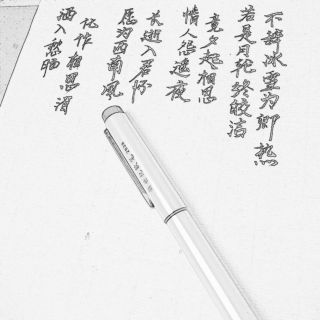 酒入愁肠
化作相思泪
愿为西南风
长逝入君怀
情人怨遥夜
竟夕起相思
若是月轮终皎洁
不辞冰雪为卿热